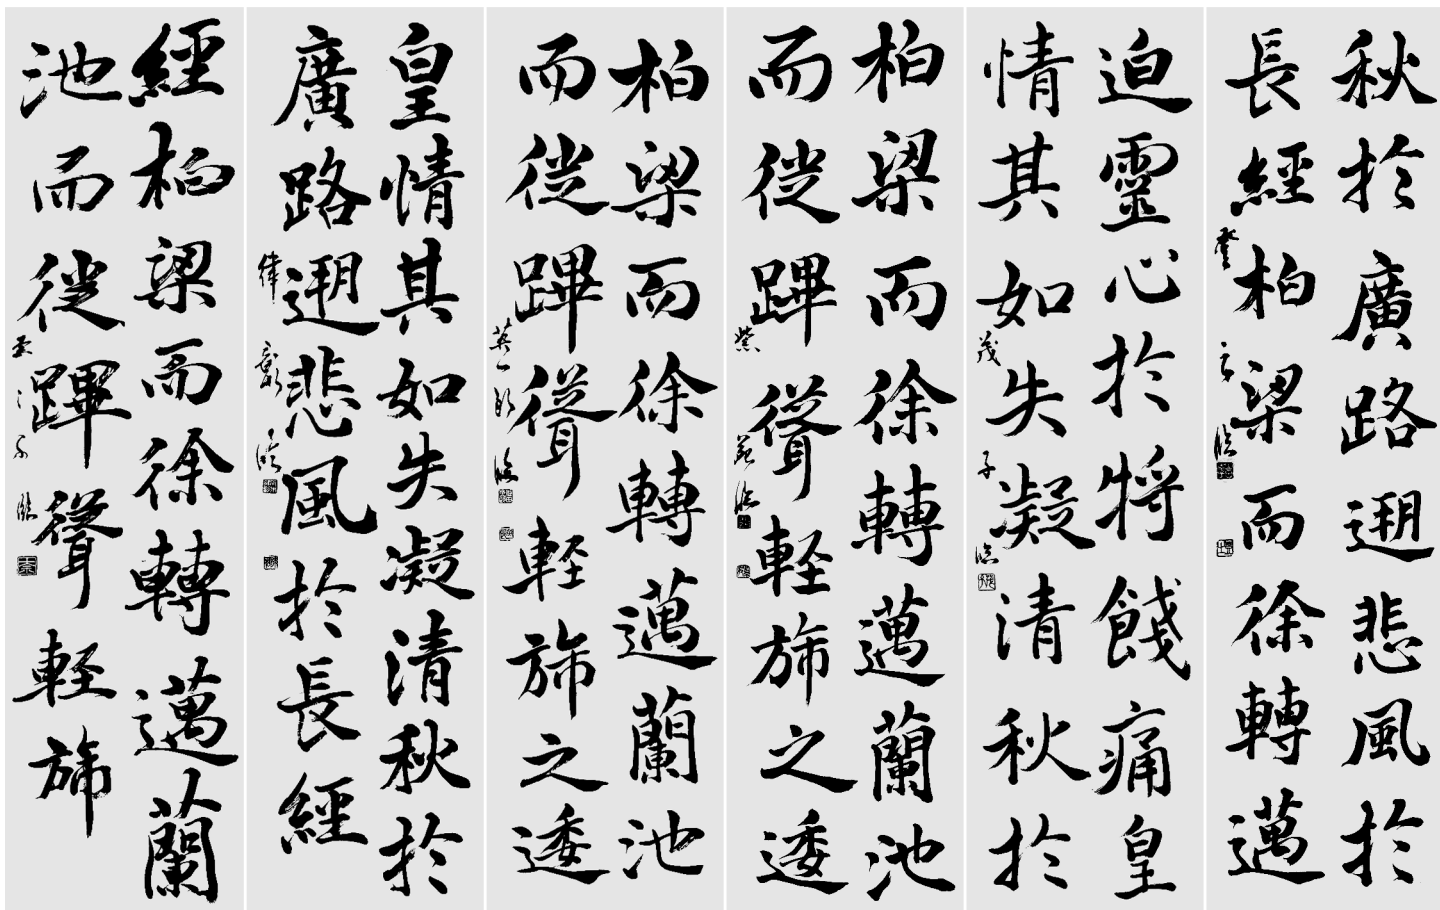 秋於廣路遡悲風於
長經柏梁而徐轉邁
迫靈心於將餞痛皇
情其如失凝清秋於
茂子臨
柏梁而徐轉邁蘭池
而從蹕聳輕旆之逶
紫苑臨
柏梁而徐轉邁蘭池
而從蹕聳輕旆之逶
英一郎臨
皇情其如失凝清秋於
廣路遡悲風於長經
經柏梁而徐轉邁蘭
池而從蹕聳輕旆